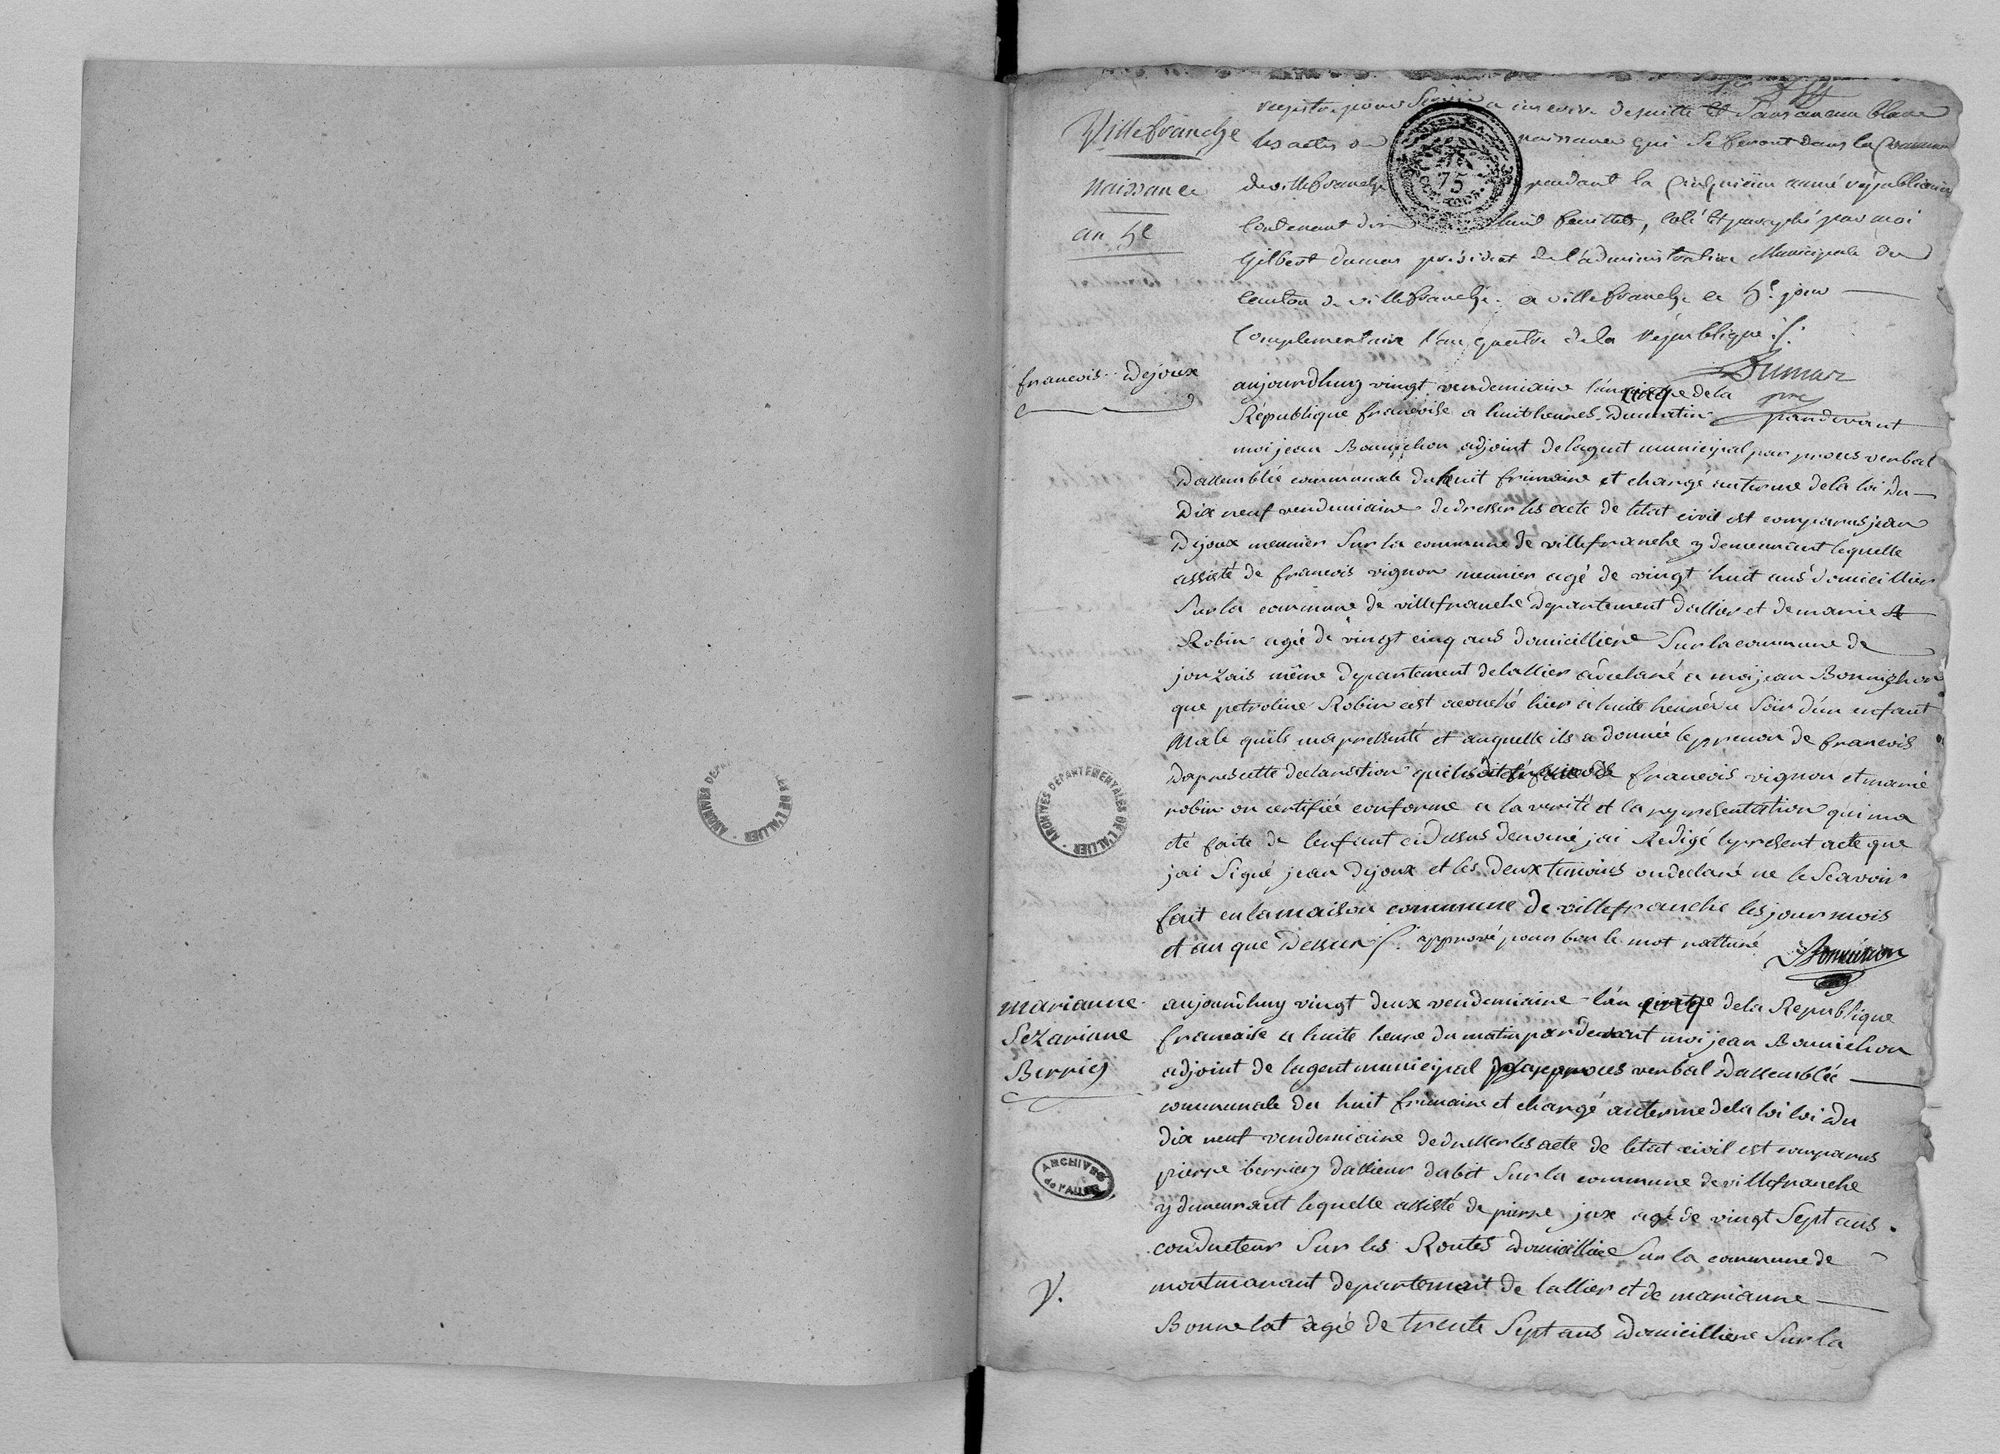 registre pour servir a inscrire desuitte Et sans aucun blanc
Villefranche
les actes de naissance qui se feront dans la Commune
naissance
de villefranche pendant la Cinquième année républicaine
an 5e
Contenant dix huit feuillets, coté Et paraphé par moi
Gilbert dumas président de l'administration Municipale du
Canton de villefranche. a villefranche le 5e jour
Complementaire l'an quatre de la république
Dumas
francois Dejoux
aujourdhuy vingt vendemiaire lan cinq de la
République francoise a huit heures Dumatin pardevant
moi jean Bonnichon adjoint de lagent municipal par proces verbal
Dassemblée communale du huit frimaire et chargé auterme de la loi du
Dix neuf vendemiaire de dresser les acte de letat civil est comparus jean
Dejoux meunier Sur la commune de villefranche y demeurant lequelle
assisté de francois vignon meunier agé de vingt huit ans domicillier
Sur la commune de villefranche departement dallier et de marie
Robin agée de vingt cinq ans domicilliere Sur la commune de
jonzais même departement de lallier a déclaré a moi jean Bonnichon
que petroline Robin est acouché hier a huite heure du Soir d'un enfant
Male quils ma présenté et auquelle ils a donnée le prenon de francois
Dapres cette declaration que francois vignon et marie
robin on certifiée conforme a la verité et la representation qui ma
été faite de lenfant cidessus denomé jai Redigé le present acte que
jai Signé jean Dejoux et les deux temoins on declaré ne le Scavoir
fait en la maison commune de villefranche les jour mois
et an que dessus approuvé pour bon le mot ratturé
Bonnichon
marianne
Sezarinne
Berrier
aujourdhuy vingt deux vendemiaine lan cinq de la Republique
francaise a huite heure du matin pardevant moi jean Bonnichon
adjoint de lagent municipal par proces verbal Dassemblée
communale du huit frimaire et chargé auterme dela loi loi du
dix neuf vendemiaire de dresser les acte de letat civil est comparus
pierre berrier dabit Sur la commune de villefranche
y demeurant lequelle assisté de pierre jux agé de vingt Sept ans
conducteur Sur les Routes domicilliée Sur la commune de
montmarant departement de lallier et de marianne
Bonnelat agée de trente Sept ans domicilliere Sur la
V.
75
ARCHIVES DEPARTEMENTALES DE L'ALLIER
ARCHIVES DEPARTEMENTALES DE L'ALLIER
ARCHIVES de l'ALLIER